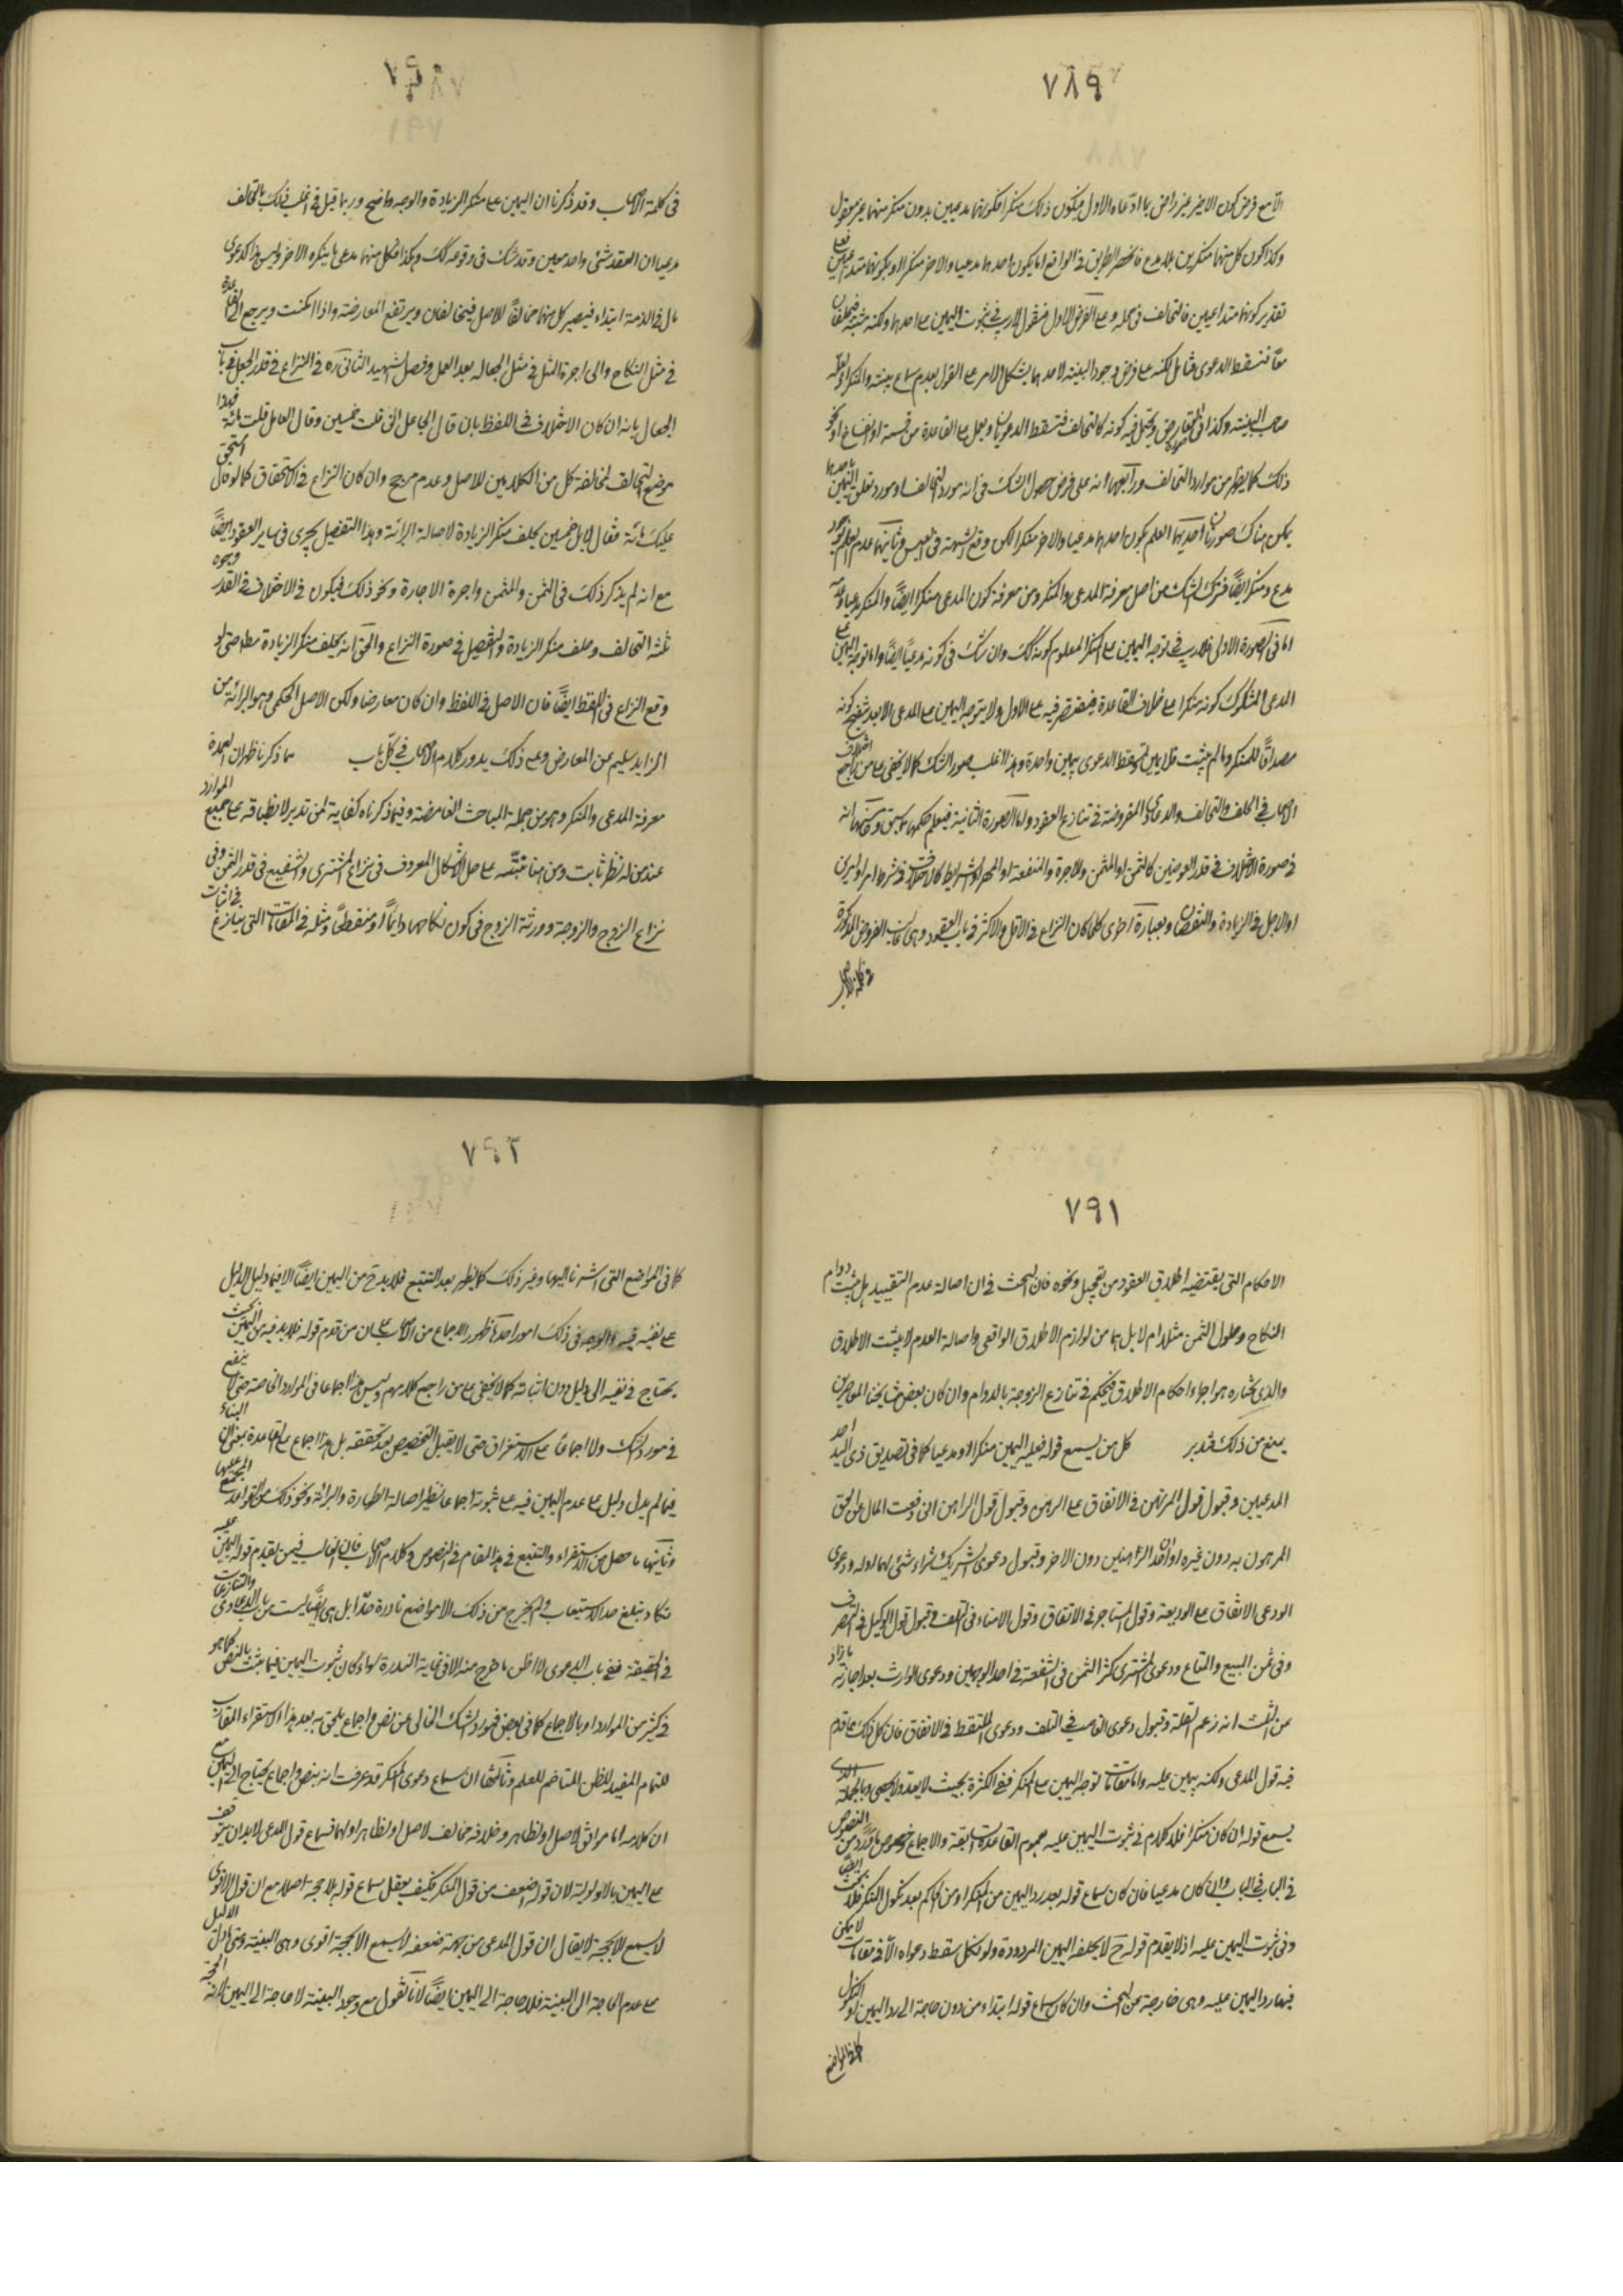 ٧٨٩
الا مع فرض كون الاخر غير راض بما ادعاه الاول فيكون ذلك منكرا فكونهما مدعيين بدون منكر منهما غير معقول
وكذا كون كل منهما منكرين بلا مدع فانحصر الطريق في الواقع اما يكون احدهما مدعيا والاخر منكرا او بكونهما متداعيين فعلى
تقدير كونهما متداعيين فالتحالف في محله وعلى الفرض الاول فنقول لا ريب في ثبوت اليمين على احدهما ولكنه مشتبه فيحلفان
معا فتسقط الدعوى فتأمل لكنه على فرض وجود البينة لاحدهما يشكل الامر على القول بعدم سماع بينة المنكر او لعله
صاحب البينة وكذا في التعارض ويحتمل فيه كونه كالتحالف فتسقط الدعويان ويعمل على القاعدة من قسمة او انفساخ او نحو
ذلك كما يظهر من موارد التحالف ورابعها انه على فرض حصول الشك في انه مورد التحالف او مورد تعلق اليمين باحدهما
يمكن هناك صورتان احديهما العلم بكون احدهما مدعيا والاخر منكرا لكن وقع الشبهة في التعيين وثانيتهما عدم العلم بوجود
مدع ومنكر ايضا فترك الشك من اصل معرفة المدعي والمنكر ومن معرفة كون المدعي منكرا ايضا والمنكر مدعيا وعدمه
اما في الصورة الاولى فلا ريب في توجه اليمين على المنكر المعلوم كونه كك وان شك في كونه مدعيا ايضا واما توجه اليمين على
المدعي المشكوك كونه منكرا على خلاف القاعدة فيقتصر فيه على الاول ولا يتوجه اليمين على المدعي الا بعد تنقيح كونه
مصداقا للمنكر وما لم يثبت فلا يمين فتسقط الدعوى بيمين واحدة وهذا اغلب صور الشك كما لا يخفى على من راجع اختلاف
الاصحاب في الحلف والتحالف والدعاوي المفروضة في تنازع العقود واما الصورة الثانية فيعلم حكمها مما سبق وخامسها انه
في صورة الاختلاف في قدر العوضين كالثمن او المثمن والاجرة والمنفعة او المهر او الشرايط كالاختلاف في شرط امر او امرين
او الاجل في الزيادة والنقصان وبعبارة اخرى كلما كان النزاع في الاقل والاكثر في باب العقود وهي غالب الفروض المذكورة
في كلمة الاصحاب
٧٩٠
في كلمة الاصحاب وقد ذكرنا ان اليمين على منكر الزيادة والوجه واضح وربما قيل في اغلب ذلك بالتحالف
مدعيا ان العقد شئ واحد معين وقد شك في وقوعه كك وهكذا فكل منهما مدعي ما ينكره الاخر وليس هذا كدعوى
مال في الذمة ابتداء فيصير كل منهما مخالفا للاصل فيتحالفان ويرتفع المعارضة واذا امكنت ويرجع الى القاعدة
في مثل النكاح والى اجرة المثل في مثل الجعالة بعد العمل وفصل الشهيد الثاني ره في النزاع في قدر الجعل في باب
الجعال بانه ان كان الاختلاف في اللفظ بان قال الجاعل اني قلت خمسين وقال العامل قلت مائة فهذا
موضع التحالف لمخالفة كل من الكلامين للاصل وعدم مرجح وان كان النزاع في الاستحقاق كما لو قال استحق
عليك مائة فقال لا بل خمسين يحلف منكر الزيادة لاصالة البرائة وهذا التفصيل يجري في ساير العقود ايضا
مع انه لم يذكر ذلك في الثمن والمثمن واجرة الاجارة ونحو ذلك فيكون في الاختلاف في القدر وجوه
ثلثة التحالف وحلف منكر الزيادة والتفصيل في صورة النزاع والحق انه يحلف منكر الزيادة مطلقا حتى لو
وقع النزاع في اللفظ ايضا فان الاصل في اللفظ وان كان معارضا ولكن الاصل الحكمي وهو البرائة من
الزايد سليم عن المعارض وعلى ذلك يدور كلام الاصحاب في كل باب مما ذكرنا ظهر ان العمدة
معرفة المدعي والمنكر وهو من جملة المباحث الغامضة وفيما ذكرناه كفاية لمن تدبر لانطباقه على جميع الموارد
عند من له نظر ثابت ومن هنا تنبه على حل الاشكال المعروف في نزاع المشتري والشفيع في قدر الثمن وفي
نزاع الزوج والزوجة وورثة الزوج في كون نكاحها دائما او منقطعا ومثله في المقامات التي يتنازع في اثبات
٧٩١
الاحكام التي يقتضيه اطلاق العقود من تعجيل ونحوه فان البحث في ان اصالة عدم التقييد هل يثبت دوام
النكاح وحلول الثمن مثلا ام لا بل هما من لوازم الاطلاق الواقعي واصالة العدم لا يثبت الاطلاق
والذي نختاره هو اجراء احكام الاطلاق فيحكم في تنازع الزوجة بالدوام وان كان بعض مشايخنا المعاصرين
يمنع من ذلك فتدبر كل من يسمع قوله فعليه اليمين منكرا او مدعيا كما في تصديق ذي اليد احد
المدعيين وقبول قول المرتهن في الانفاق على الرهن وقبول قول الراهن اني دفعت المال عن الحق
المرهون به دون غيره او ان احد الراهنين دون الاخر وقبول دعوى الشريك شراء شئ لهما او له ودعوى
الودعي الانفاق على الوديعة وقول المستاجر في الانفاق وقول الامناء في التلف وقبول قول الوكيل في التصرف
وفي ثمن المبيع والمتاع ودعوى المشتري كثرة الثمن في الشفعة في احد الوجهين ودعوى الوارث بعد اجازته ما زاد
عن الثلث انه زعم القلة وقبول دعوى الغاصب في التلف ودعوى الملتقط في الانفاق فان كل ذلك مما قدم
فيه قول المدعي ولكنه بيمين عليه واما مقامات توجه اليمين على المنكر ففي الكثرة بحيث لا يعد ولا يحصى وبالجملة الذي
يسمع قوله ان كان منكرا فلا كلام في ثبوت اليمين عليه عموم القاعدة السابقة والاجماع خصوص ما ورد من النصوص
في الباب في الباب وان كان مدعيا فان كان سماع قوله بعد رد اليمين من المنكر او من الحاكم بعد نكول المنكر فلا بحث ايضا
وفي ثبوت اليمين عليه اذ لا يقدم قوله ح لا بحلفه اليمين المردودة ولو نكل سقط دعواه الا في مقامات لا يمكن
فيها رد اليمين عليه وهي خارجة عن البحث وان كان سماع قوله ابتداء من دون حاجة الى رد اليمين او النكول
كما في المواضع
٧٩٢
كما في المواضع التي اشرنا اليها وغير ذلك كما يظهر بعد التتبع فلا بد ح من اليمين ايضا الا فيما دل الدليل
على نفيه فيه والوجه في ذلك امور احدها ظهور الاجماع من الاصحاب على ان من قدم قوله فلا بد فيه من اليمين بحيث
يحتاج في نفيه الى دليل دون اثباته كما لا يخفى على من راجع كلامهم وليس هذا اجماعا في الموارد الخاصة حتى لا ينفع
في مورد الشك ولا اجماعا على الاستغراق حتى لا يقبل التخصيص بعد تحققه بل هذا اجماع على القاعدة بمعنى ان البناء
فيما لم يدل دليل على عدم اليمين فيه على ثبوته اجماعا نظير اصالة الطهارة والبرائة ونحو ذلك من القواعد المجمع عليها
وثانيها ما حصل من الاستقراء والتتبع في هذا المقام في النصوص وكلام الاصحاب فان الغالب فيمن يقدم قوله اليمين عليه
تكاد يبلغ حد الاستيعاب ولم يخرج من ذلك الا مواضع نادرة جدا بل هي ايضا ليست من باب الدعاوي والتنازعات
في الحقيقة ففي باب الدعوى لا اظن ما خرج منه الا في غاية الندرة سواء كان ثبوت اليمين فيما ثبت بالنص كما هو
في كثير من الموارد او بالاجماع كما في بعض فمورد الشك الخالي عن نص واجماع يلحق به بعد هذا الاستقراء المقارب
للتمام المفيد للظن المتاخم للعلم وثالثها ان سماع دعوى المنكر قد عرفت انه بنص واجماع يحتاج الى اليمين مع
ان كلامه اما موافق لاصل او لظاهر وخلافه مخالف لاصل او لظاهر او لهما فسماع قول المدعي لا بد ان يتوقف
على اليمين بالاولوية لان قوله اضعف من قول المنكر فكيف يعقل سماع قوله بلا حجة اصلا مع ان قول الاقوى
لا يسمع الا بحجة لا يقال ان قول المدعي من جهة ضعفه لا يسمع الا بحجة اقوى وهي البينة ومتى ما دل الدليل
على عدم الحاجة الى البينة فلا حاجة الى اليمين ايضا لانا نقول مع وجود البينة لا حاجة الى اليمين لانه الحجة